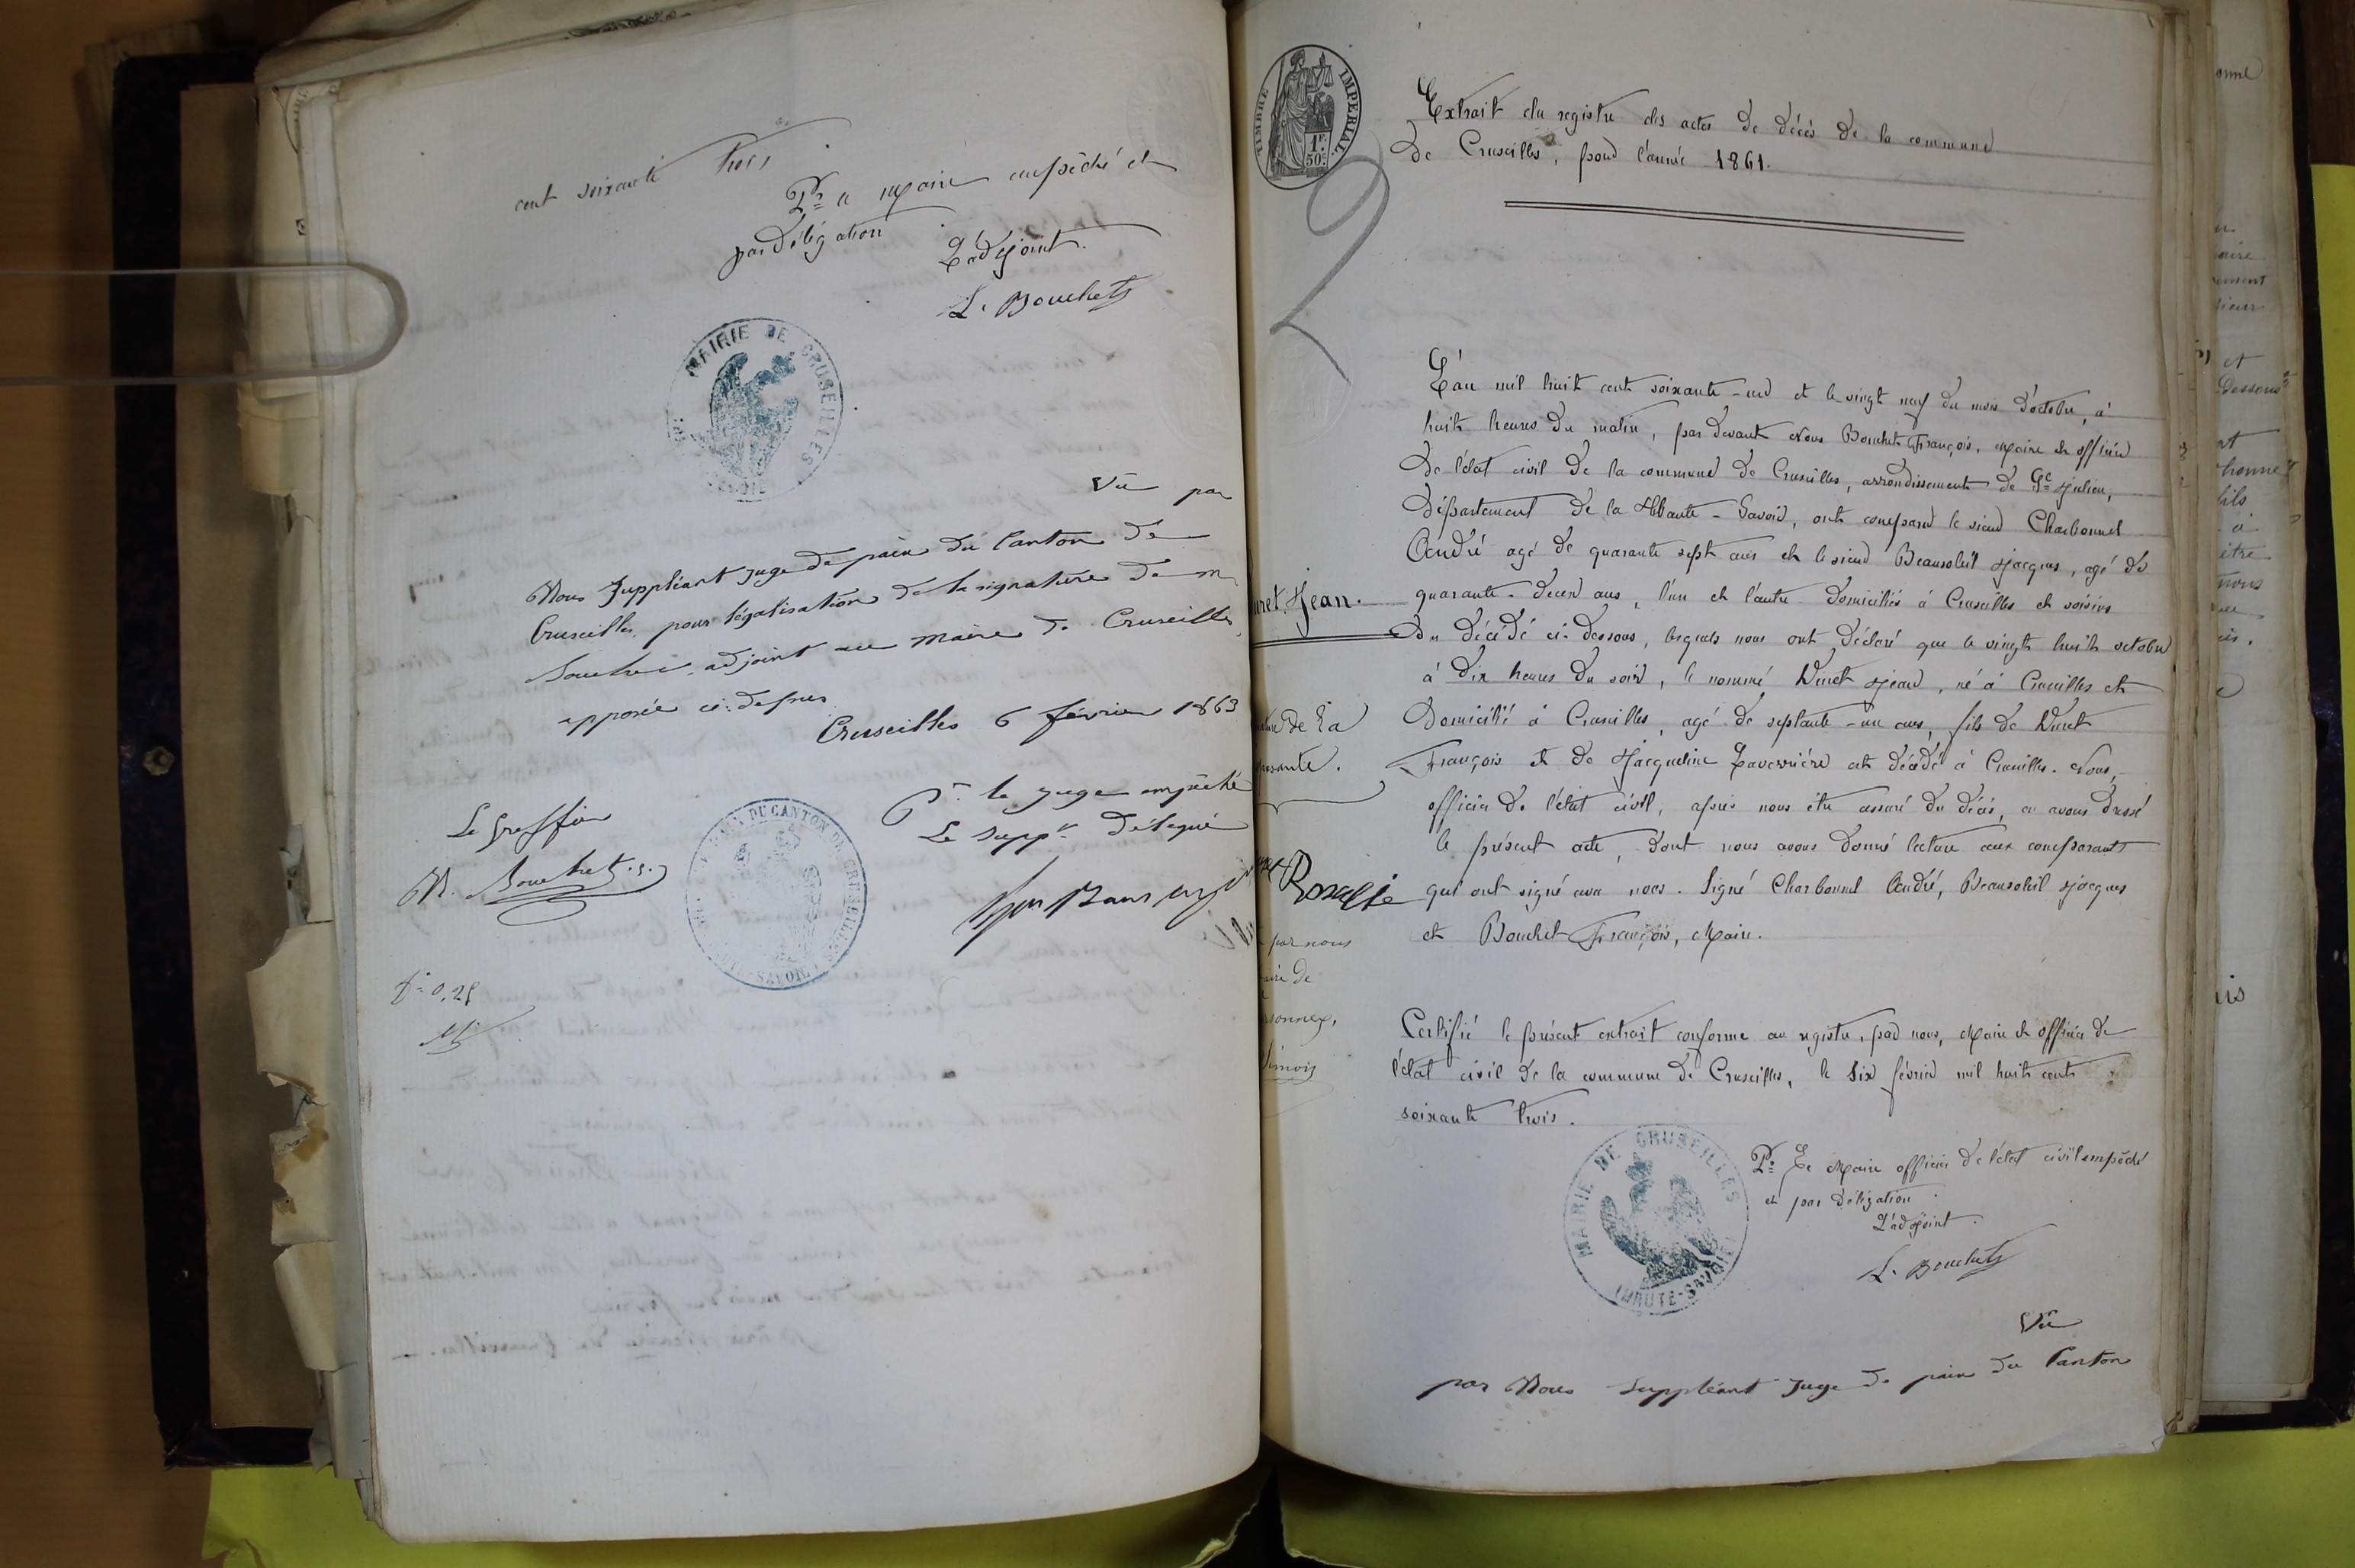 cent soixante trois
Pr le Maire empêché et
par délégation
L'adjoint
L. Bouchet
MAIRIE DE CRUSEILLES
Vu par
Nous Suppléant juge de paix du Canton de
Cruseilles, pour légalisation de la signature de m
Bouchet, adjoint au maire de Cruseilles,
apposée ci-dessus
Cruseilles 6 février 1863
Pr le juge empêché
Le suppt délégué
Le Greffier
M. Bouchet
DU CANTON DE CRUSEILLES
SAVOIE
f = 0,25
TIMBRE IMPÉRIAL
1F. 50c
2
Extrait du registre des actes de décès de la commune
de Cruseilles, pour l'année 1861.
L'an mil huit cent soixante-un et le vingt neuf du mois d'octobre, à
huit heures du matin, par devant Nous Bouchet François, Maire et officier
de l'état civil de la commune de Cruseilles, arrondissement de St Julien,
Département de la Haute-Savoie, ont comparu le sieur Charbonnel
André agé de quarante sept ans et le sieur Beausoleil Jacques, agé de
quarante-deux ans, l'un et l'autre domiciliés à Cruseilles et voisins
du décédé ci-dessous, lesquels nous ont déclaré que le vingt huit octobre
à dix heures du soir, le nommé Duret Jean, né à Cruseilles et
domicilié à Cruseilles, agé de septante-un ans, fils de Duret
François et de Jacqueline Laverrière est décédé à Cruseilles. Nous,
officier de l'état civil, après nous être assuré du décès, en avons dressé
le présent acte, dont nous avons donné lecture aux comparants
qui ont signé avec nous. Signé Charbonnel André, Beausoleil Jacques
et Bouchet François, Maire.
Certifié le présent extrait conforme au registre, par nous, Maire et officier de
l'état civil de la commune de Cruseilles, le Six février mil huit cent
soixante trois.
MAIRIE DE CRUSEILLES
(HAUTE-SAVOIE)
Pr Le Maire officier de l'état civil empêché
et par délégation
L'adjoint
L. Bouchet
Vu
par Nous Suppléant juge de paix du Canton
uret Jean.
de la
Rosalie
par nous